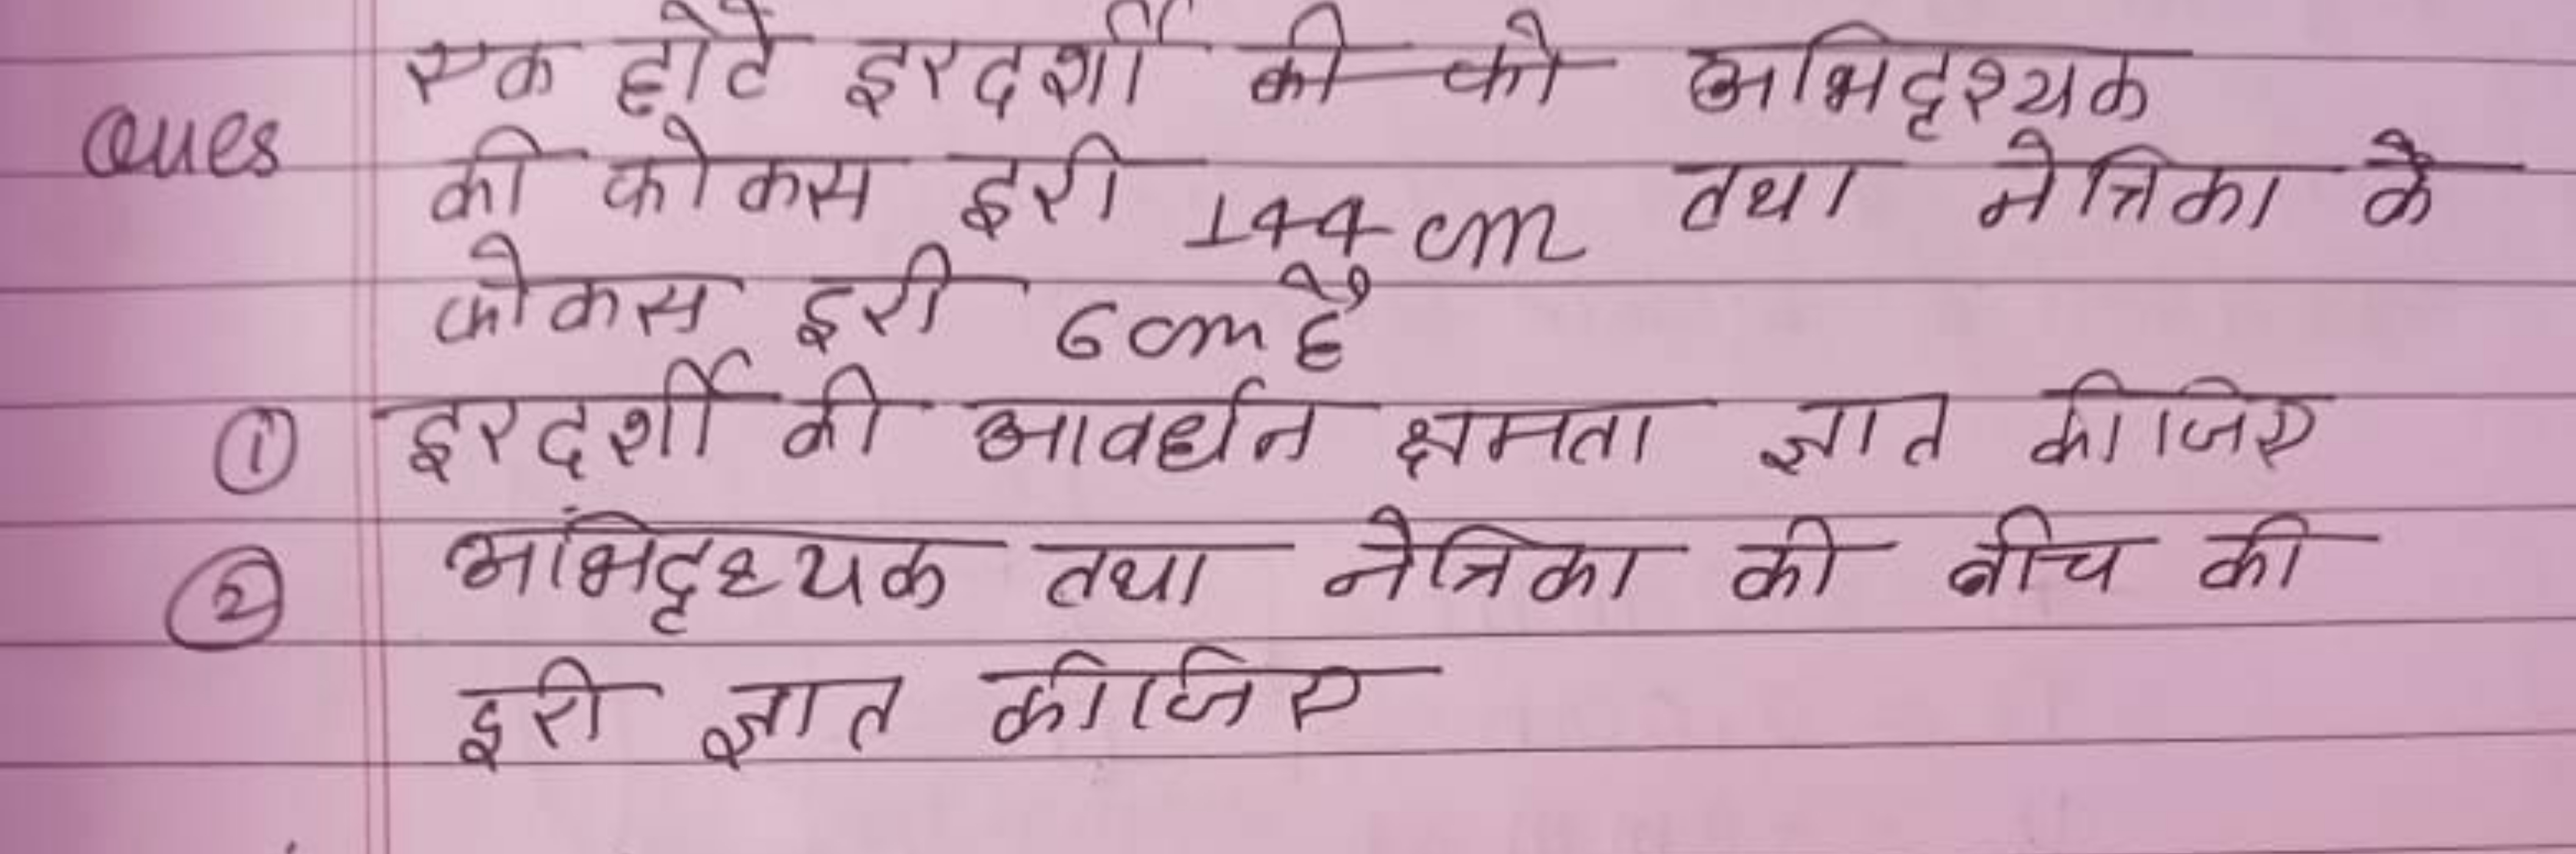 एक छोटे दूरदर्शी की को अभिदृश्यक
Ques की फोकस दूरी 144 cm तथा नेत्रिका के
फोकस दूरी 6 cm है
① दूरदर्शी की आवर्धन क्षमता ज्ञात कीजिए
② अभिदृश्यक तथा नेत्रिका की बीच की
दूरी ज्ञात कीजिए